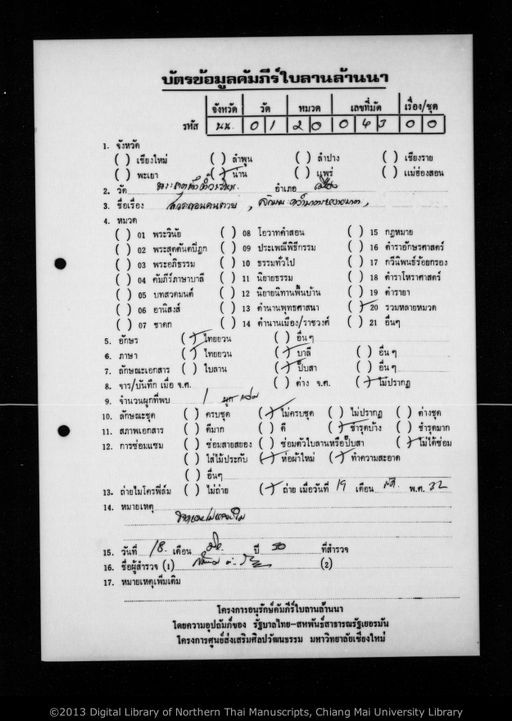 บัตรข้อมูลคัมภีร์ใบลานล้านนา
จังหวัด วัด หมวด เลขที่มัด เรื่อง/ชุด
รหัส นน. 0 1 2 0 0 4 3 0 0
1. จังหวัด
( ) เชียงใหม่ ( ) ลำพูน ( ) ลำปาง ( ) เชียงราย
( ) พะเยา (/) น่าน ( ) แพร่ ( ) แม่ฮ่องสอน
2. วัด อำเภอ เมือง
3. ชื่อเรื่อง
4. หมวด
( ) 01 พระวินัย ( ) 08 โอวาทคำสอน ( ) 15 กฎหมาย
( ) 02 พระสุตตันตปิฎก ( ) 09 ประเพณีพิธีกรรม ( ) 16 ตำราอักษรศาสตร์
( ) 03 พระอภิธรรม ( ) 10 ธรรมทั่วไป ( ) 17 กวีนิพนธ์ร้อยกรอง
( ) 04 คัมภีร์ภาษาบาลี ( ) 11 นิยายธรรม ( ) 18 ตำราโหราศาสตร์
( ) 05 บทสวดมนต์ ( ) 12 นิยายนิทานพื้นบ้าน ( ) 19 ตำรายา
( ) 06 อานิสงส์ ( ) 13 ตำนานพุทธศาสนา (/) 20 รวมหลายหมวด
( ) 07 ชาดก ( ) 14 ตำนานเมือง/ราชวงศ์ ( ) 21 อื่นๆ
5. อักษร (/) ไทยยวน ( ) อื่นๆ
6. ภาษา (/) ไทยยวน (/) บาลี ( ) อื่นๆ
7. ลักษณะเอกสาร ( ) ใบลาน (/) ปั๊บสา ( ) อื่นๆ
8. จาร/บันทึก เมื่อ จ.ศ. ( ) ต่าง จ.ศ. (/) ไม่ปรากฏ
9. จำนวนผูกที่พบ 1 ผูก
10. ลักษณะชุด ( ) ครบชุด (/) ไม่ครบชุด ( ) ไม่ปรากฏ ( ) ต่างชุด
11. สภาพเอกสาร ( ) ดีมาก ( ) ดี (/) ชำรุดบ้าง ( ) ชำรุดมาก
12. การซ่อมแซม ( ) ซ่อมสายสยอง ( ) ซ่อมตัวใบลานหรือปั๊บสา (/) ไม่ได้ซ่อม
( ) ใส่ไม้ประกับ (/) ห่อผ้าใหม่ (/) ทำความสะอาด
( ) อื่นๆ
13. ถ่ายไมโครฟิล์ม ( ) ไม่ถ่าย (/) ถ่าย เมื่อวันที่ 19 เดือน พ.ศ. 32
14. หมายเหตุ
15. วันที่ 18 เดือน ปี 30 ที่สำรวจ
16. ชื่อผู้สำรวจ (1) (2)
17. หมายเหตุเพิ่มเติม
โครงการอนุรักษ์คัมภีร์ใบลานล้านนา
โดยความอุปถัมภ์ของ รัฐบาลไทย-สหพันธ์สาธารณรัฐเยอรมัน
โครงการศูนย์ส่งเสริมศิลปวัฒนธรรม มหาวิทยาลัยเชียงใหม่
©2013 Digital Library of Northern Thai Manuscripts, Chiang Mai University Library